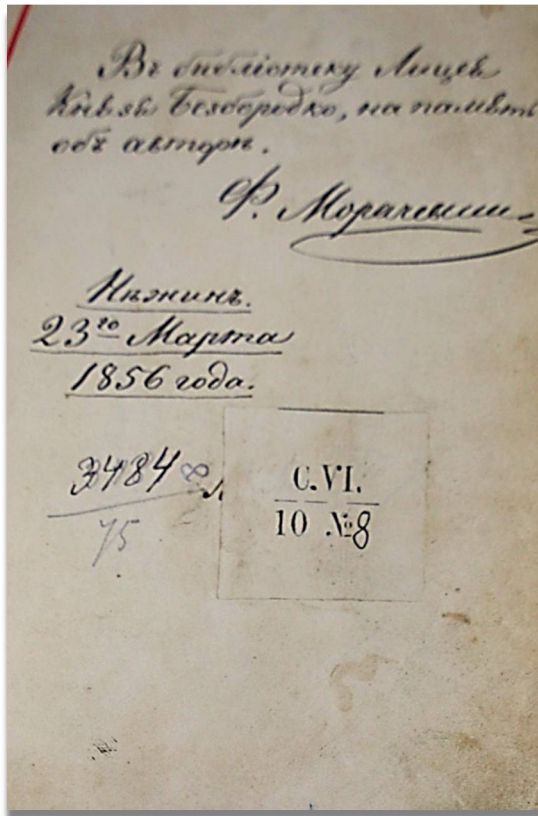 Въ библіотеку Лицея
Князя Безбородко, на память
объ авторѣ.
Ф. Морачевскі
Нѣжинъ.
23го Марта
1856 года.
3484
75
C.VI.
10 №8